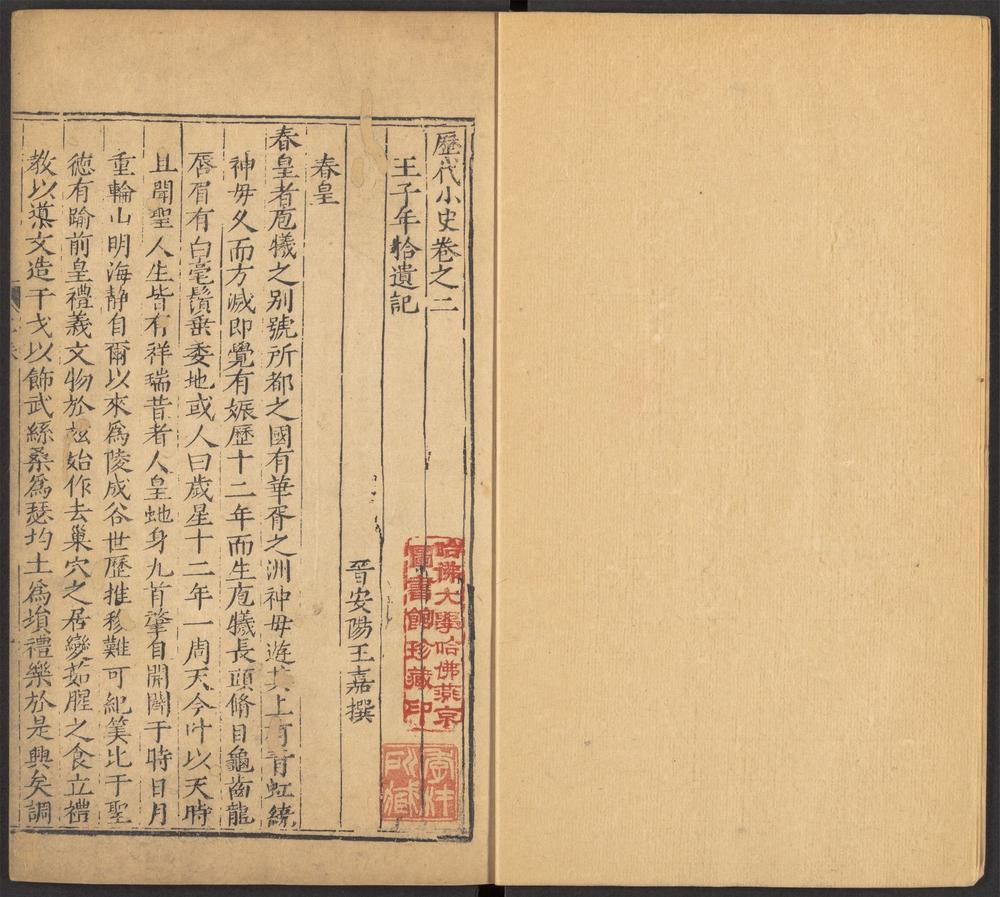 歷代小史卷之二
王子年拾遺記
晉安陽王嘉撰
春皇
春皇者庖犧之别號所都之國有華胥之洲神母遊其上有青虹繞
神母久而方滅即覺有娠歷十二年而生庖犧長頭脩目龜齒龍
唇眉有白毫鬚垂委地或人曰歲星十二年一周天今叶以天時
且聞聖人生皆有祥瑞昔者人皇蛇身九首肇自開闢于時日月
重輪山明海静自爾以來爲陵成谷世歷推移難可紀筭比于聖
徳有踰前皇禮義文物於兹始作去巢穴之居變茹腥之食立禮
教以導文造干戈以飾武絲桑爲瑟均土爲塤禮樂於是興矣調
哈佛大學哈佛燕京
圖書館珍藏印